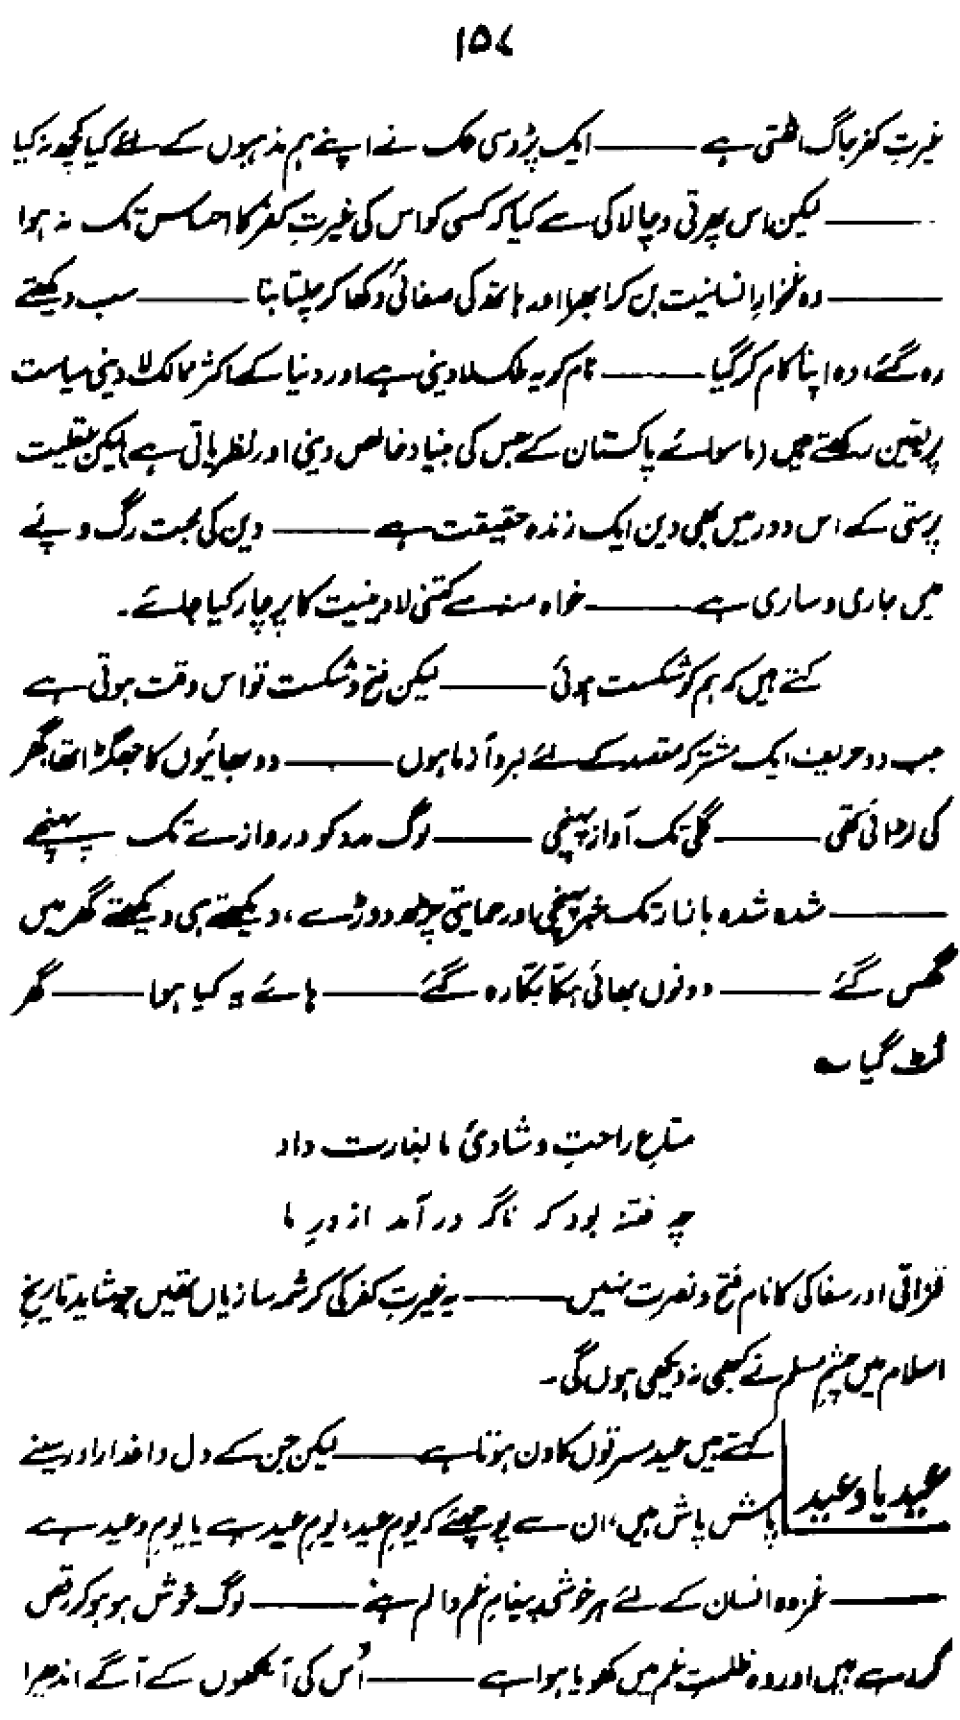 ۱۵۷
غیرتِ کفر جاگ اٹھتی ہے ——— ایک پڑوسی ملک نے اپنے ہم مذہبوں کے لئے کیا کچھ نہ کیا
——— لیکن اس پھرتی و چالاکی سے کیا کہ کسی کو اس کی غیرتِ کفر کا احساس تک نہ ہوا
——— وہ غمخوارِ انسانیت بن کر ابھرا اور ہاتھ کی صفائی دکھا کر چلتا بنا ——— سب دیکھتے
رہ گئے، وہ اپنا کام کر گیا ——— نام کو یہ ملک لادینی ہے اور دنیا کے اکثر ممالک لادینی سیاست
پر یقین رکھتے ہیں (ماسوائے پاکستان کے جس کی بنیاد خالص دینی اور نظریاتی ہے) لیکن عقلیت
پرستی کے اس دور میں بھی دین ایک زندہ حقیقت ہے ——— دین کی محبت رگ و پئے
میں جاری و ساری ہے ——— خواہ منہ سے کتنی لادینیت کا پرچار کیا جائے۔
کہتے ہیں کہ ہم کو شکست ہوئی ——— لیکن فتح و شکست تو اس وقت ہوتی ہے
جب دو حریف ایک مشترکہ مقصد کے لئے نبرد آزما ہوں ——— دو بھائیوں کا جھگڑا تھا، گھر
کی لڑائی تھی ——— گلی تک آواز پہنچی ——— لوگ مدد کو دروازے تک پہنچے
——— شدہ شدہ بازار تک خبر پہنچی اور حمایتی چڑھ دوڑے، دیکھتے ہی دیکھتے گھر میں
گھس گئے ——— دونوں بھائی ہکّا بکّا رہ گئے ——— ہائے یہ کیا ہوا ——— گھر
لُٹ گیا ؎
متاعِ راحت و شادیٔ ما بغارت داد
چہ فتنہ بود کہ ناگہ در آمد از درِ ما
قزاقی اور سفاکی کا نام فتح و نصرت نہیں ——— یہ غیرتِ کفر کی کرشمہ سازیاں تھیں جو شاید تاریخِ
اسلام میں چشمِ مسلم نے کبھی نہ دیکھی ہوں گی۔
عید یا وعید
کہتے ہیں عید مسرتوں کا دن ہوتا ہے ——— لیکن جن کے دل داغدار اور سینے
پاش پاش ہیں، ان سے پوچھئے کہ یومِ عید، یومِ عید ہے یا یومِ وعید ہے
——— غمزدہ انسان کے لئے ہر خوشی پیغامِ غم و الم ہے ——— لوگ خوش ہو ہو کر رقص
کر رہے ہیں اور وہ ظلمتِ غم میں کھویا ہوا ہے ——— اُس کی آنکھوں کے آگے اندھیرا